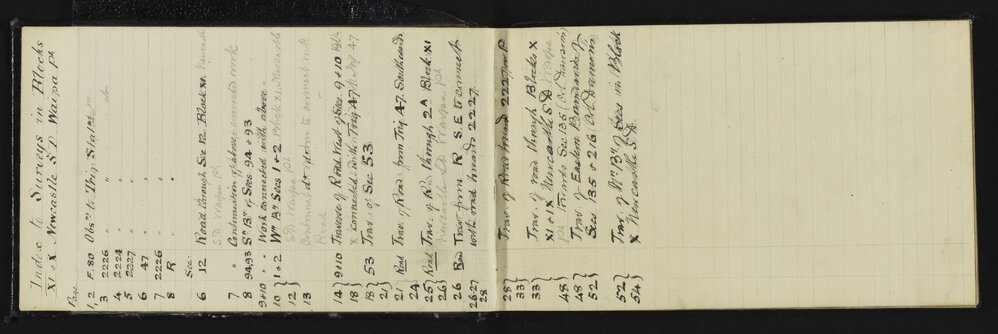 Index to Surveys in Blocks
XI & X Newcastle S.D. Waipa
Page
1, 2 F. 80 Obs to Trig Stations
3 2226 "
4 2224 "
5 2227 "
6 47 "
7 2226 "
8 R "
Sec.
6 12 Road through Sec 12 Block XI Newcastle
S.D. Waipa
7 " Continuation of above & connected work
8 94,93 Sn By of Secs 94 & 93
9 & 10 " " Work connected with above
10 } 1 & 2 Wn By Secs 1 & 2 Block XI Newcastle
12 } S.D. Waipa
13
Road
14 } 9 & 10 Traverse of Road West of Secs 9 & 10
18 } X connected with Trig 47
18 } 53 Trav. of Sec 53
21 }
21 Road Trav. of Road from Trig 47 Southwards
24
25 } Road Trav. of Rd. through 2A Block XI
26 } Newcastle S.D. Waipa
26 Road Trav. from R S.E to connect
26-27 with road towards 2227
28
28 } Trav. of Road round 2227
33 }
33 } Trav. of road through Blocks X
XI & IX Newcastle S.D. Waipa
48 } towards Sec 135
48 } Trav. of Eastern Boundaries of
52 } Secs 135 & 216
52 } Trav. of Wn By of Secs in Block
54 } X Newcastle S.D.